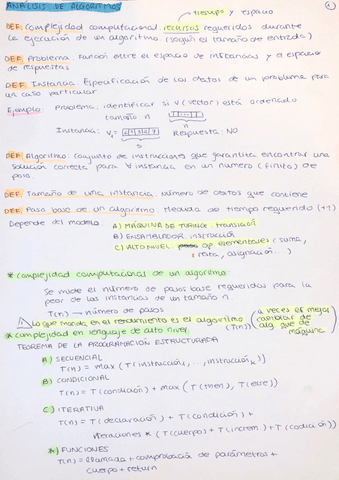 ANÁLISIS DE ALGORITMOS
tiempo y espacio
DEF: Complejidad computacional: recursos requeridos durante
la ejecución de un algoritmo (según el tamaño de entrada)
DEF: Problema: Función entre el espacio de instancias y el espacio
de respuestas
DEF: Instancia: Especificación de los datos de un problema para
un caso particular
Ejemplo: Problema: identificar si V (vector) está ordenado
tamaño n
Instancia: V,
Respuesta: NO
5
DEF: Algoritmo: Conjunto de instrucciones que garantiza encontrar una
solución correcta para ∀ instancia en un número (finito) de
pasos
DEF: Tamaño de una instancia: número de datos que contiene
DEF: Paso base de un algoritmo: Medida de tiempo requerido (+1)
Depende del modelo:
A) MÁQUINA DE TURING: transición
B) ENSAMBLADOR: instrucción
C) ALTO NIVEL: op elementales (suma,
resta, asignación...)
* Complejidad computacional de un algoritmo
Se mide el número de pasos base requeridos para la
peor de las instancias de un tamaño n.
T(n) → número de pasos
⚠ Lo que manda en el rendimiento es el algoritmo (T(n)) (a veces es mejor
cambiar de
alg que de
máquina)
* Complejidad en lenguaje de alto nivel
TEOREMA DE LA PROGRAMACIÓN ESTRUCTURADA
A) SECUENCIAL
T(n) = max (T(instrucción₁, ..., instrucciónₖ))
B) CONDICIONAL
T(n) = T(condición) + max (T(then), T(else))
C) ITERATIVA
T(n) = T(declaración) + T(condición) +
iteraciones * (T(cuerpo) + T(increm.) + T(condición))
*) FUNCIONES
T(n) = llamada + comprobación de parámetros +
cuerpo + return